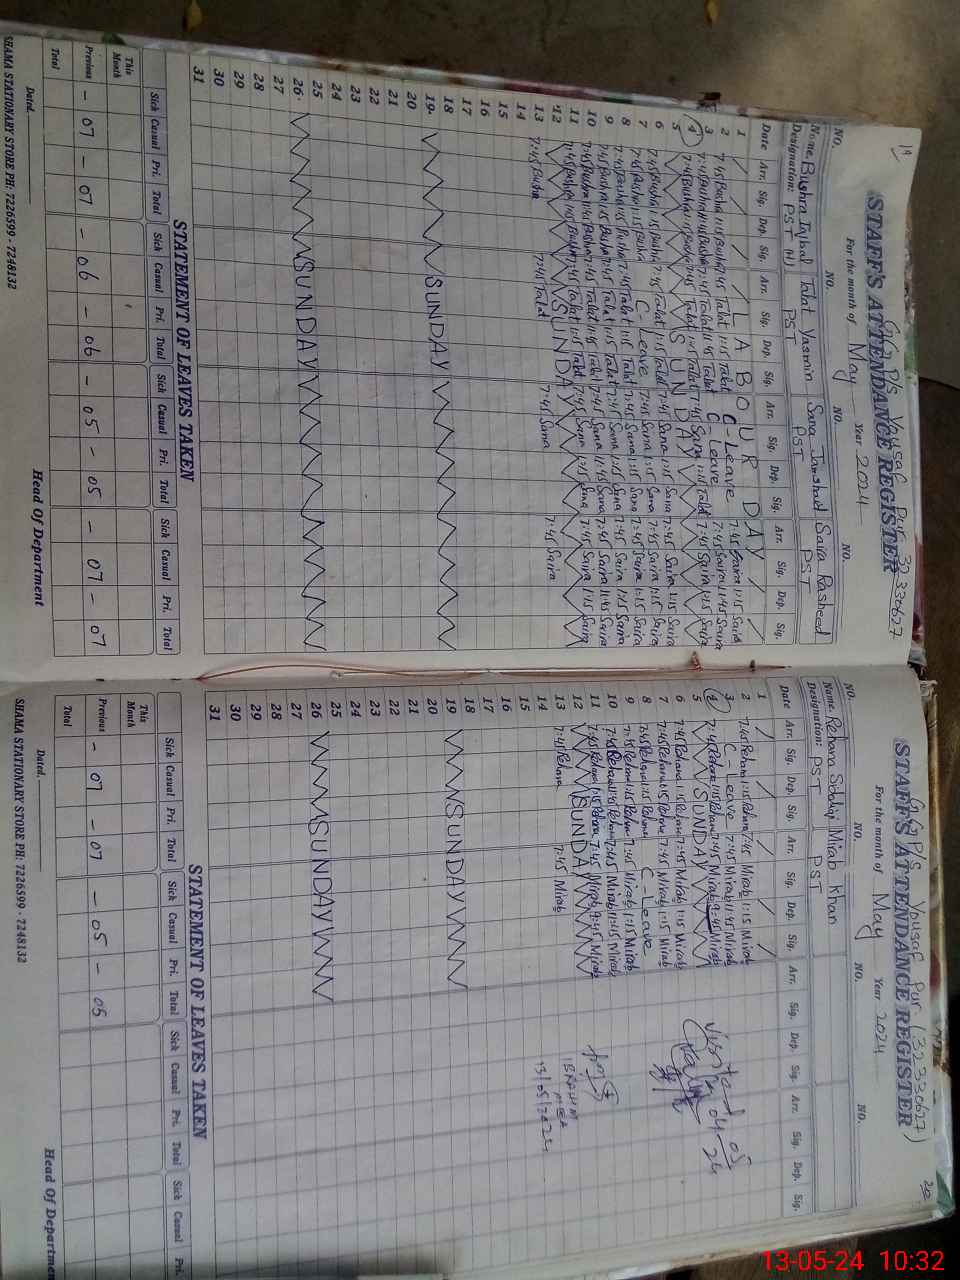 19
G.G P/S Yousaf Pur 32330627
STAFF'S ATTENDANCE REGISTER
For the month of May Year 2024
NO. NO. NO. NO.
Name. Bushra Iqbal Talat Yasmin Sana Jamshaid Saira Rasheed
Designation: PST PST PST PST
Date Arr. Sig. Dep. Sig. Arr. Sig. Dep. Sig. Arr. Sig. Dep. Sig. Arr. Sig. Dep. Sig.
1 LABOUR DAY
2 7:45 Bushra 1:15 Bushra 7:45 Talat 1:15 Talat C-Leave 7:45 Saira 1:15 Saira
3 7:45 Bushra 11:45 Bushra 7:45 Talat 11:45 Talat C-Leave 7:45 Saira 11:45 Saira
4 7:45 Bushra 1:15 Bushra 7:45 Talat 1:15 Talat 7:45 Sana 1:15 7:45 Saira 1:15 Saira
5 SUNDAY
6 7:45 Bushra 1:15 Bushra 7:45 Talat 1:15 Talat 7:45 Sana 1:15 Sana 7:45 Saira 1:15 Saira
7 7:45 Bushra 1:15 Bushra C-Leave 7:45 Sana 1:15 Sana 7:45 Saira 1:15 Saira
8 7:45 Bushra 1:15 Bushra 7:45 Talat 1:15 Talat 7:45 Sana 1:15 Sana 7:45 Saira 1:15 Saira
9 7:45 Bushra 1:15 Bushra 7:45 Talat 1:15 Talat 7:45 Sana 1:15 Sana 7:45 Saira 1:15 Saira
10 7:45 Bushra 11:45 Bushra 7:45 Talat 11:45 Talat 7:45 Sana 11:45 Sana 7:45 Saira 11:45 Saira
11 7:45 Bushra 1:15 Bushra 7:45 Talat 1:15 Talat 7:45 Sana 1:15 Sana 7:45 Saira 1:15 Saira
12 SUNDAY
13 7:45 Bushra 7:45 Talat 7:45 Sana 7:45 Saira
14
15
16
17
18
19 SUNDAY
20
21
22
23
24
25
26 SUNDAY
27
28
29
30
31
STATEMENT OF LEAVES TAKEN
Sick Casual Pri. Total Sick Casual Pri. Total Sick Casual Pri. Total Sick Casual Pri. Total
This Month
Previous - 07 - 07 - 06 - 06 - 05 - 05 - 07 - 07
Total
Dated. Head Of Department
SHAMA STATIONARY STORE PH: 7226599 - 7248132
20
G.G P/S Yousaf Pur (32330627)
STAFF'S ATTENDANCE REGISTER
For the month of May Year 2024
NO. NO. NO. NO.
Name Rehana Mirab Khan
Designation: PST PST
Date Arr. Sig. Dep. Sig. Arr. Sig. Dep. Sig. Arr. Sig. Dep. Sig. Arr. Sig. Dep. Sig.
1
2 7:45 Rehana 1:15 Rehana 7:45 Mirab 1:15 Mirab
3 C-Leave 7:45 Mirab 11:45 Mirab
4 7:45 Rehana 1:15 Rehana 7:45 Mirab Mirab
5 SUNDAY
6 7:45 Rehana 1:15 Rehana 7:45 Mirab 1:15 Mirab
7 7:45 Rehana 1:15 Rehana 7:45 Mirab 1:15 Mirab
8 7:45 Rehana 1:15 Rehana C-Leave
9 7:45 Rehana 1:15 Rehana 7:45 Mirab 1:15 Mirab
10 7:45 Rehana 11:45 Rehana 7:45 Mirab 11:45 Mirab
11 7:45 Rehana 1:15 Rehana 7:45 Mirab Mirab
12 SUNDAY
13 7:45 Rehana 7:45 Mirab
14
15
16
17
18
19 SUNDAY
20
21
22
23
24
25
26 SUNDAY
27
28
29
30
31
Visited
04 05 24
IBRAHIM
MEA
13/05/2024
STATEMENT OF LEAVES TAKEN
Sick Casual Pri. Total Sick Casual Pri. Total Sick Casual Pri. Total Sick Casual Pri.
This Month
Previous - 07 - 07 - 05 - 05
Total
Dated. Head Of Departmen
SHAMA STATIONARY STORE PH: 7226599 - 7248132
13-05-24 10:32